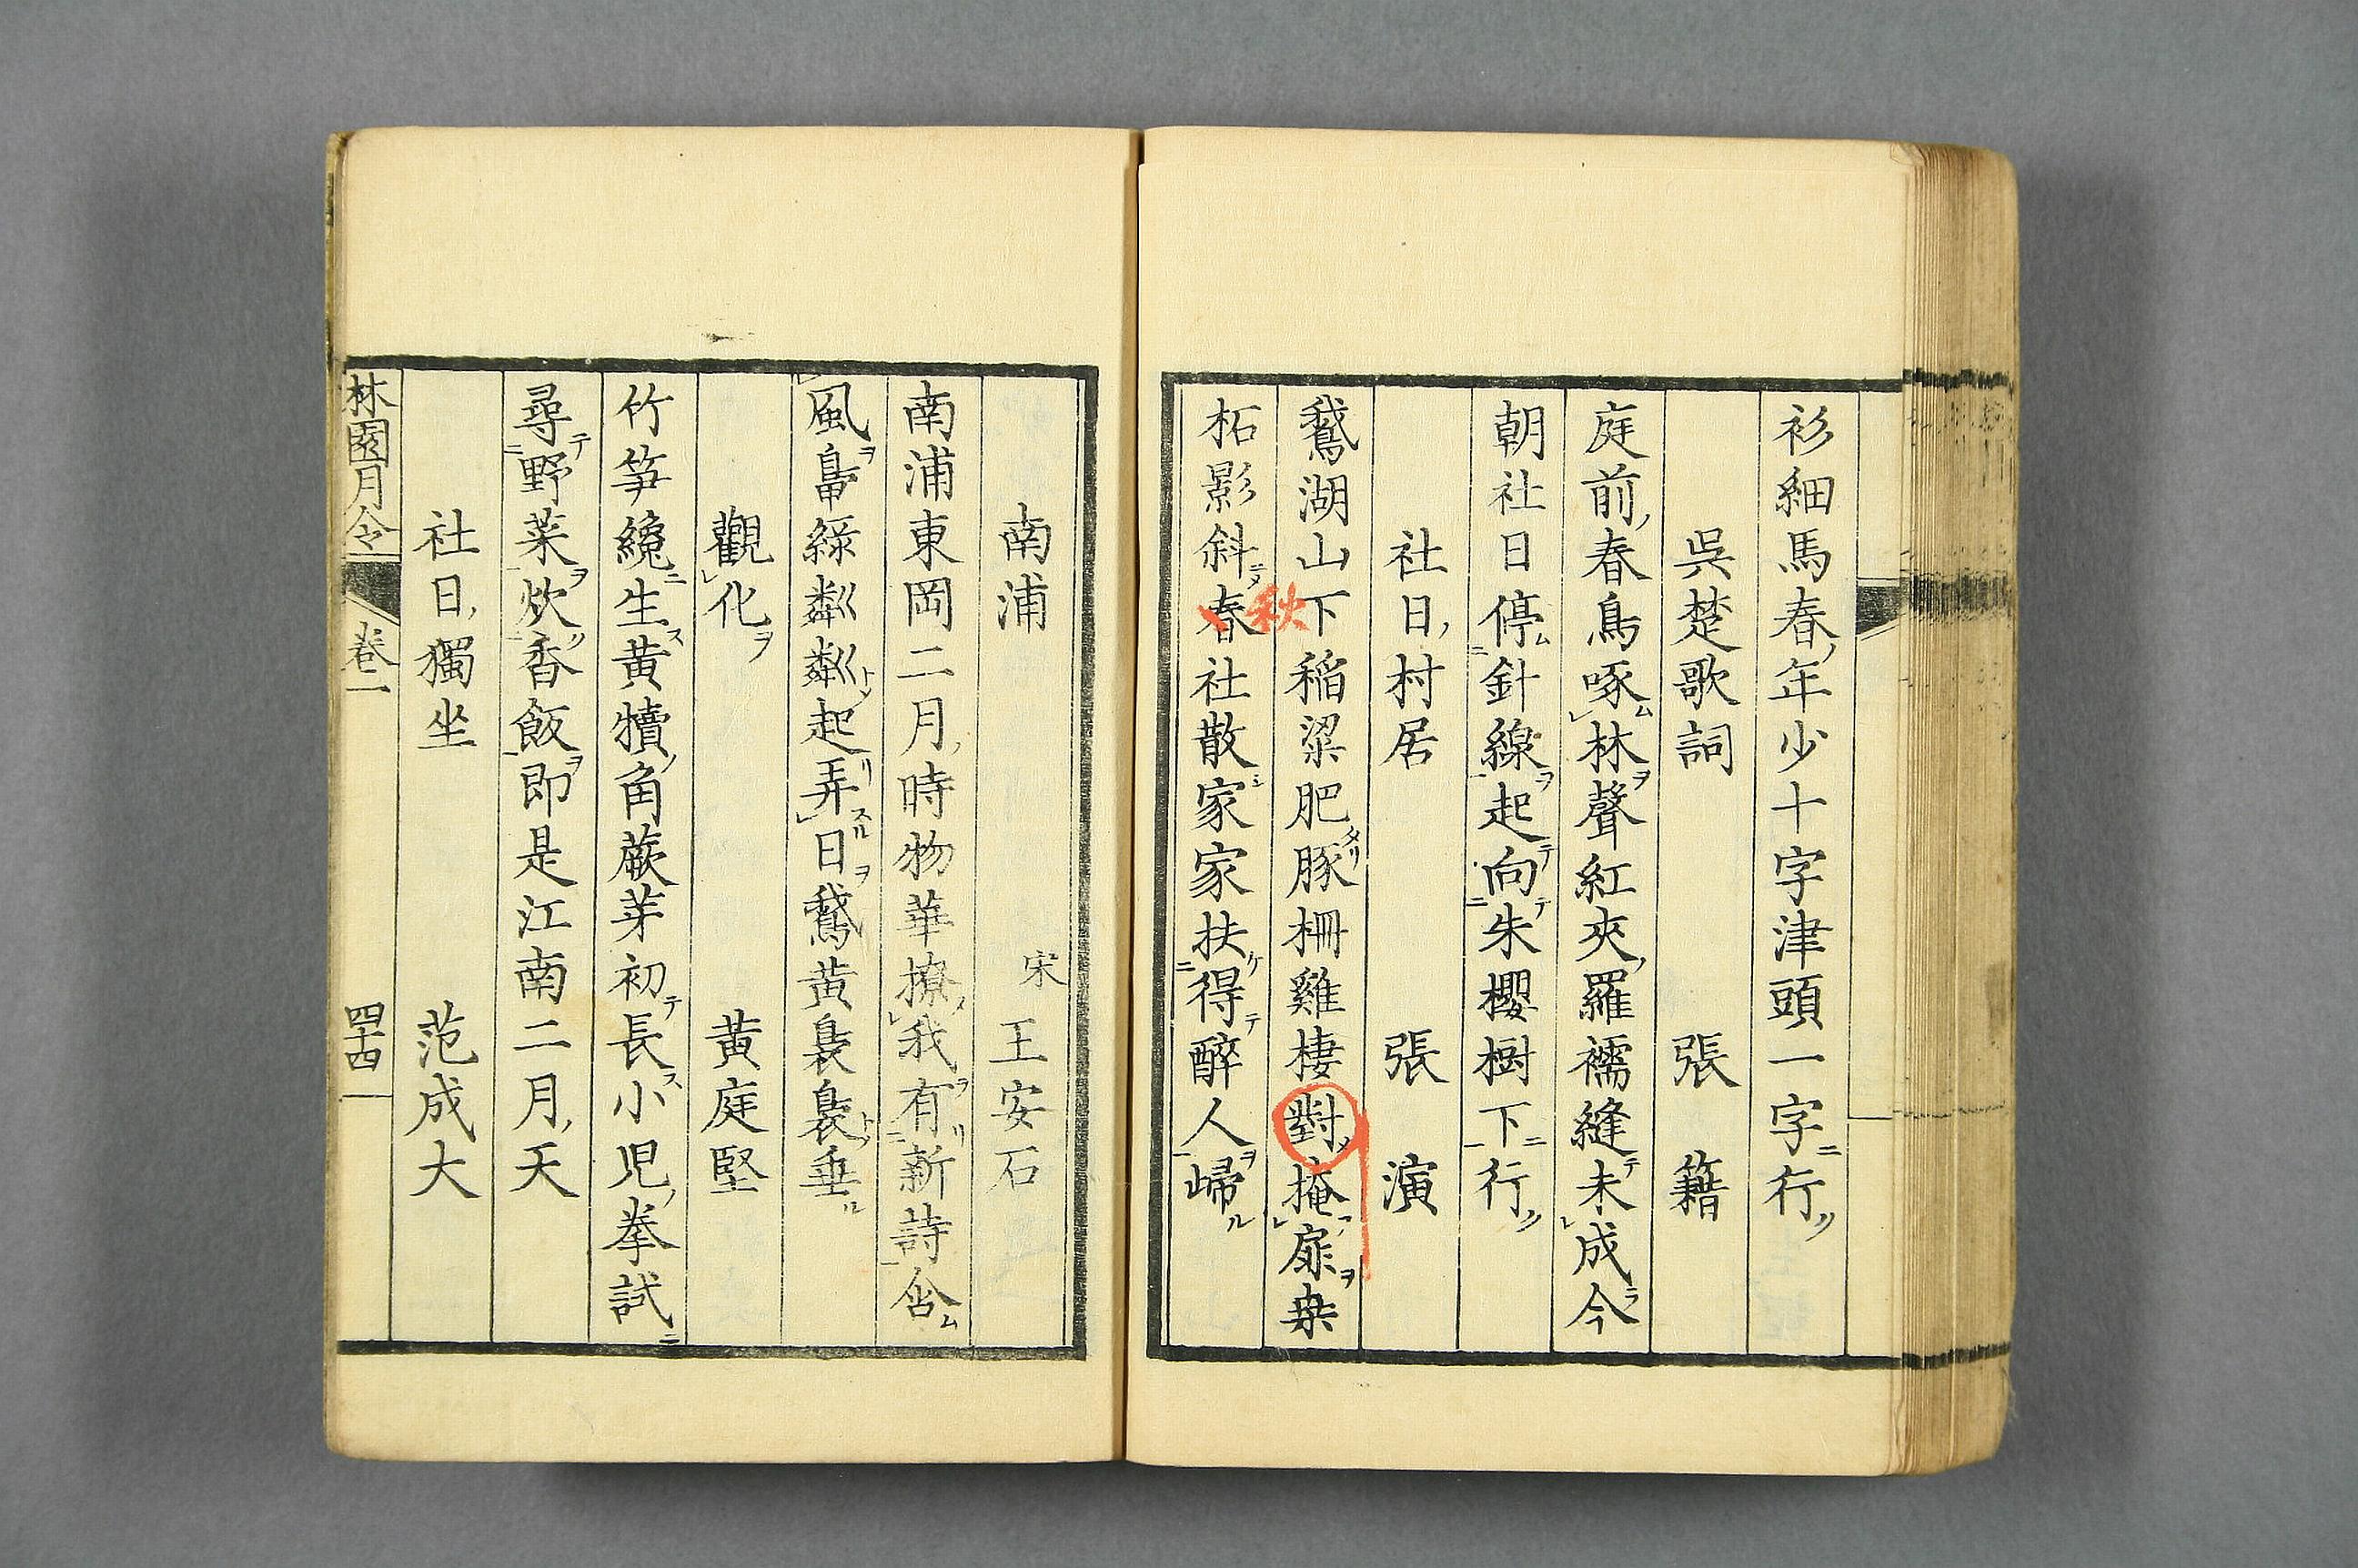 衫細馬春年少十字津頭一字行
呉楚歌詞　張籍
庭前春鳥啄林聲紅夾羅襦縫未成今
朝社日停針線起向朱櫻樹下行
社日村居　張演
鵞湖山下稲粱肥豚柵雞棲對掩扉桒
柘影斜春社散家家扶得醉人歸
秋
南浦　宋王安石
南浦東岡二月時物華撩我有新詩含
風鴨緑粼粼起弄日鵞黄裊裊垂
觀化　黄庭堅
竹笋纔生黄犢角蕨芽初長小児拳試
尋野菜炊香飯即是江南二月天
社日獨坐　范成大
林園月令
卷一
四十四